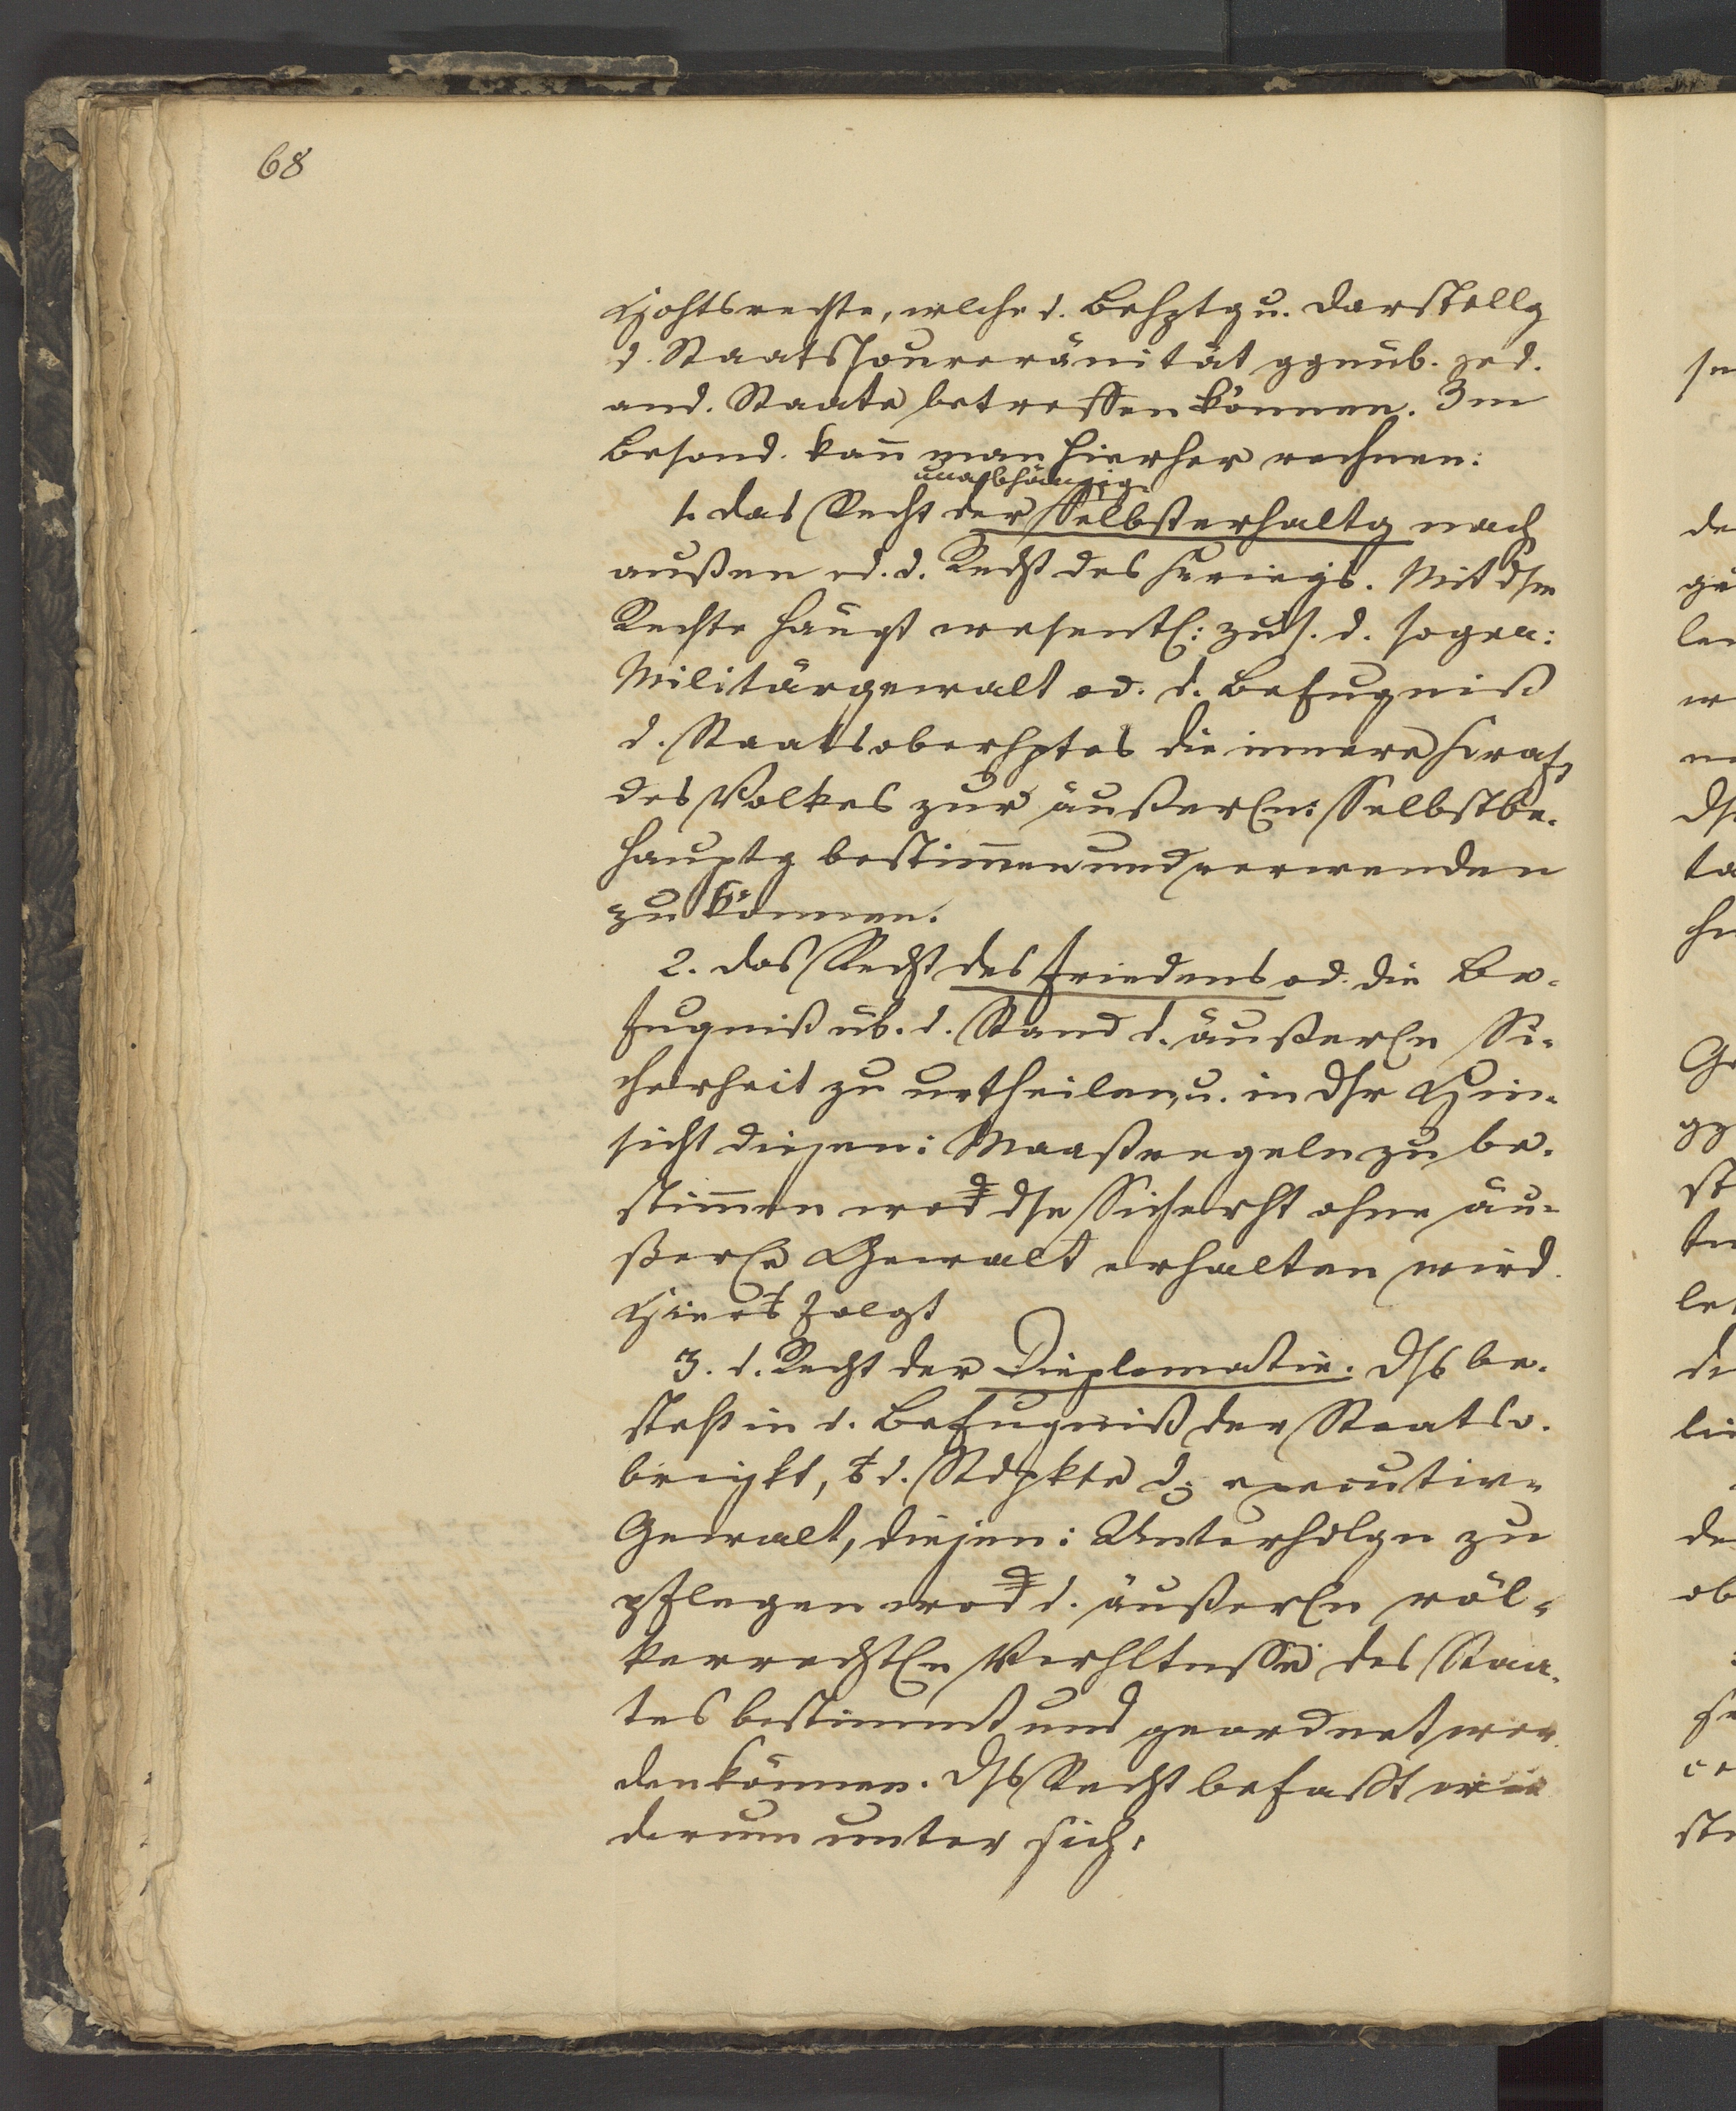 68
Hohtsrechte, welche d. Behptg u. Darstellg
d. Staatssouveränität ggnüb. jed.
and. Staate betreffen können. Im
Besond. kan̄ man hierher rechnen:
unabhängige
1. das Recht der Selbsterhaltg nach
außen od. d. Recht des Krieges. Mit dsm
Rechte hängt wesentl: zus. d. sogen:
Militärgewalt od. d. Befugniß
d. Staatsoberhptes die innere Kraft
des Volkes zur äußerln: Selbstbe-
hauptg bestim̄en und verwenden
zu können.
2. das Recht des Friedens od. die Be-
fugniß üb. d. Stand d. äußerln Si-
cherheit zu urtheilen, u. in dsr Hin-
sicht diejen: Maaßregeln zu be-
stim̄en wod dse Sicherht ohne äu-
ßerle Gewalt erhalten wird.
Hieraus folgt
3. d. Recht der Dieplomatie. Dss be-
steht in d. Befugniß der Staatso-
brigkt, d. Stdpkte d. executive
Gewalt, diejen: Unterhdlgn zu
pflegen wod d. äußerln völ-
kerrechtln Verhltnsse des Staa-
tes bestimmt und geordnet wer-
den können. Dss Recht befaßt wie
derum unter sich: